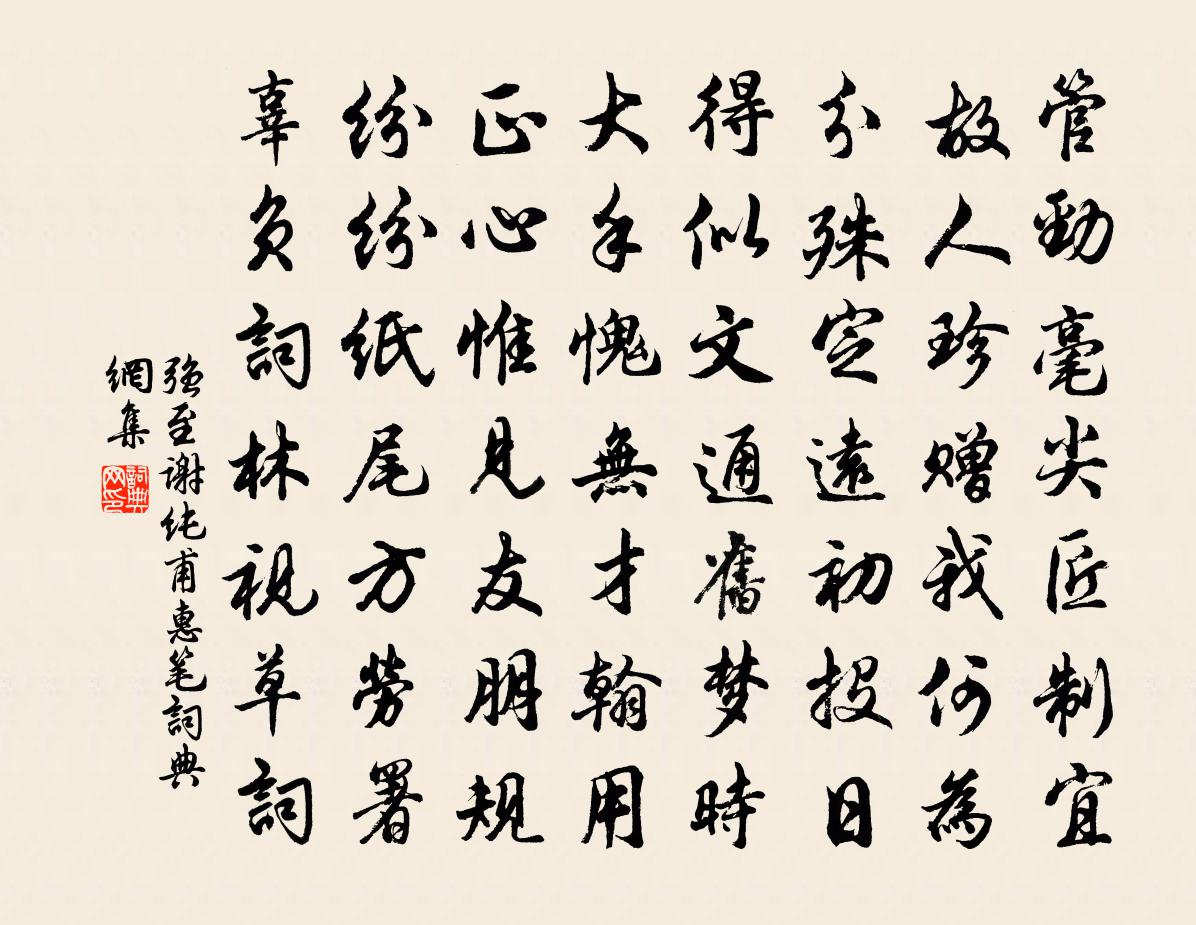 管勁毫尖匠制宜
故人珍贈我何為
分殊定遠初投日
得似文通舊梦時
大手愧無才翰用
正心惟見友朋規
紛紛紙尾方勞署
辜負詞林視草詞
强至谢纯甫惠笔詞典
網集
詞典網印